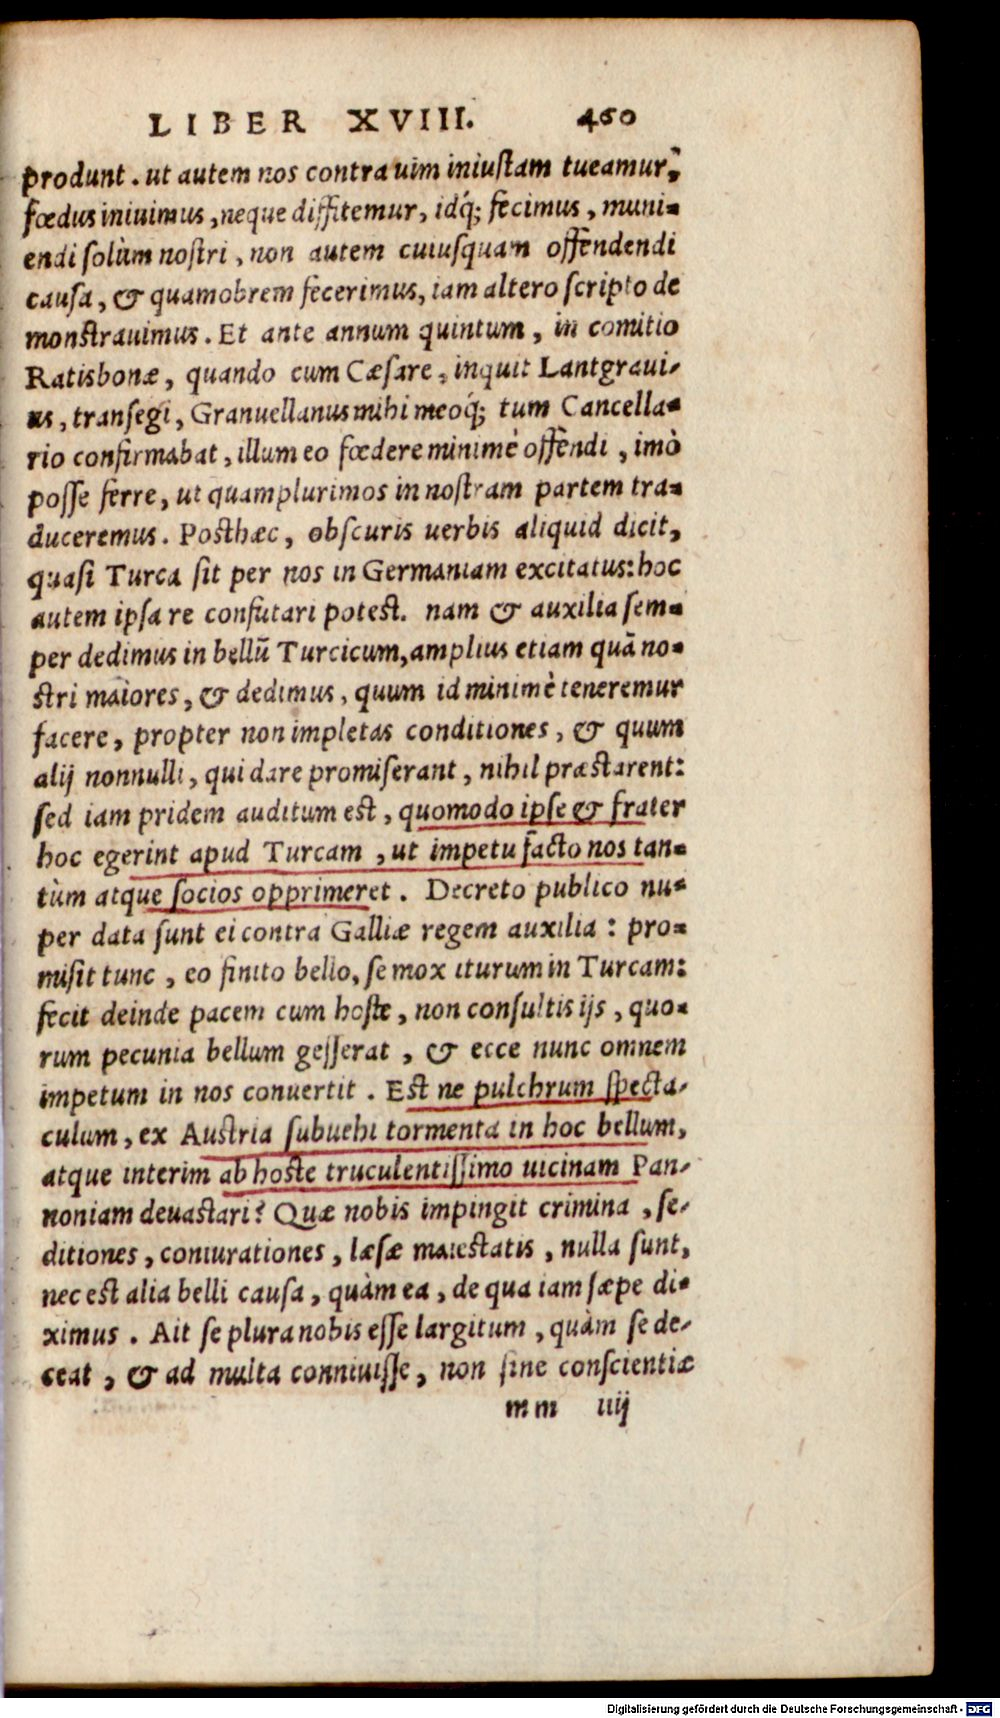 LIBER XVIII. 460
produnt. ut autem nos contra uim iniustam tueamur,
fœdus iniuimus, neque diffitemur, idq́; fecimus, muni-
endi solùm nostri, non autem cuiusquam offendendi
causa, & quamobrem fecerimus, iam altero scripto de
monstrauimus. Et ante annum quintum, in comitio
Ratisbonæ, quando cum Cæsare, inquit Lantgraui-
us, transegi, Granuellanus mihi meoq́; tum Cancella-
rio confirmabat, illum eo fœdere minimè offendi, imò
posse ferre, ut quamplurimos in nostram partem tra-
duceremus. Posthæc, obscuris uerbis aliquid dicit,
quasi Turca sit per nos in Germaniam excitatus: hoc
autem ipsa re confutari potest. nam & auxilia sem-
per dedimus in bellū Turcicum, amplius etiam quā no-
stri maiores, & dedimus, quum id minimè teneremur
facere, propter non impletas conditiones, & quum
alij nonnulli, qui dare promiserant, nihil præstarent:
sed iam pridem auditum est, quomodo ipse & frater
hoc egerint apud Turcam, ut impetu facto nos tan-
tùm atque socios opprimeret. Decreto publico nu-
per data sunt ei contra Galliæ regem auxilia: pro-
misit tunc, eo finito bello, se mox iturum in Turcam:
fecit deinde pacem cum hoste, non consultis ijs, quo-
rum pecunia bellum gesserat, & ecce nunc omnem
impetum in nos conuertit. Est ne pulchrum specta-
culum, ex Austria subuehi tormenta in hoc bellum,
atque interim ab hoste truculentissimo uicinam Pan-
noniam deuastari? Quæ nobis impingit crimina, se-
ditiones, coniurationes, læsæ maiestatis, nulla sunt,
nec est alia belli causa, quàm ea, de qua iam sæpe di-
ximus. Ait se plura nobis esse largitum, quàm se de-
ceat, & ad multa conniuisse, non sine conscientiæ
mm iiij
Digitalisierung gefördert durch die Deutsche Forschungsgemeinschaft - DFG